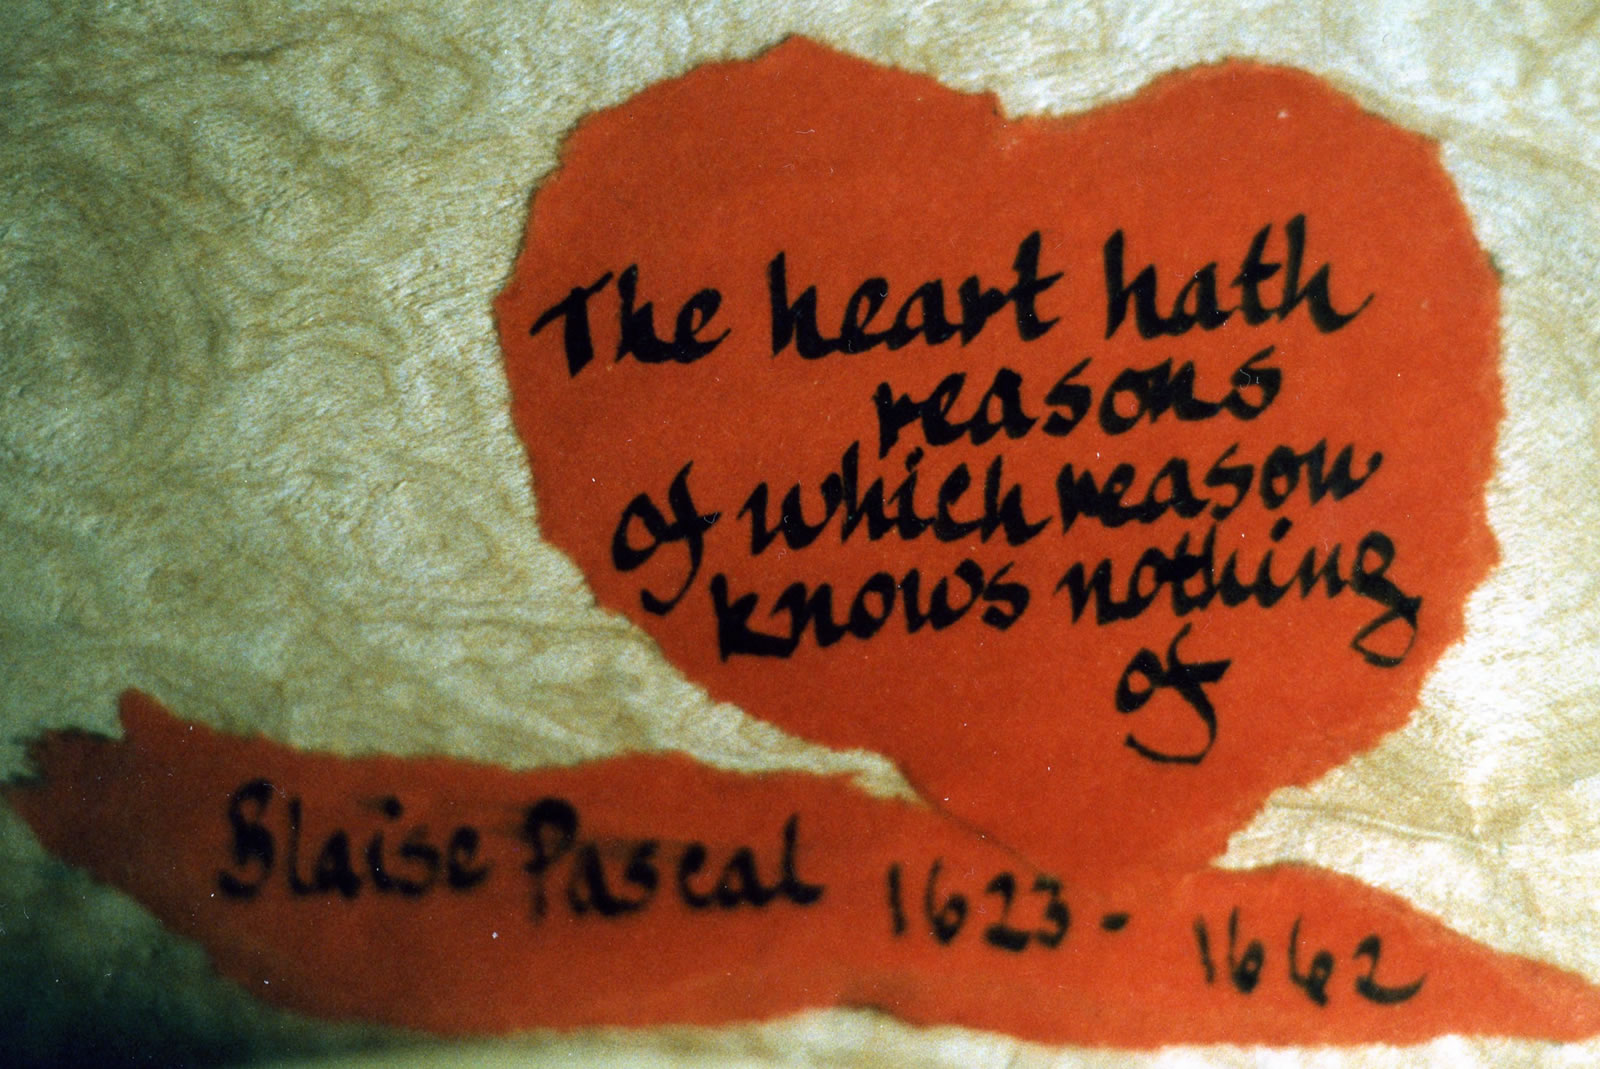 The heart hath
reasons
of which reason
knows nothing
of
Blaise Pascal 1623-1662